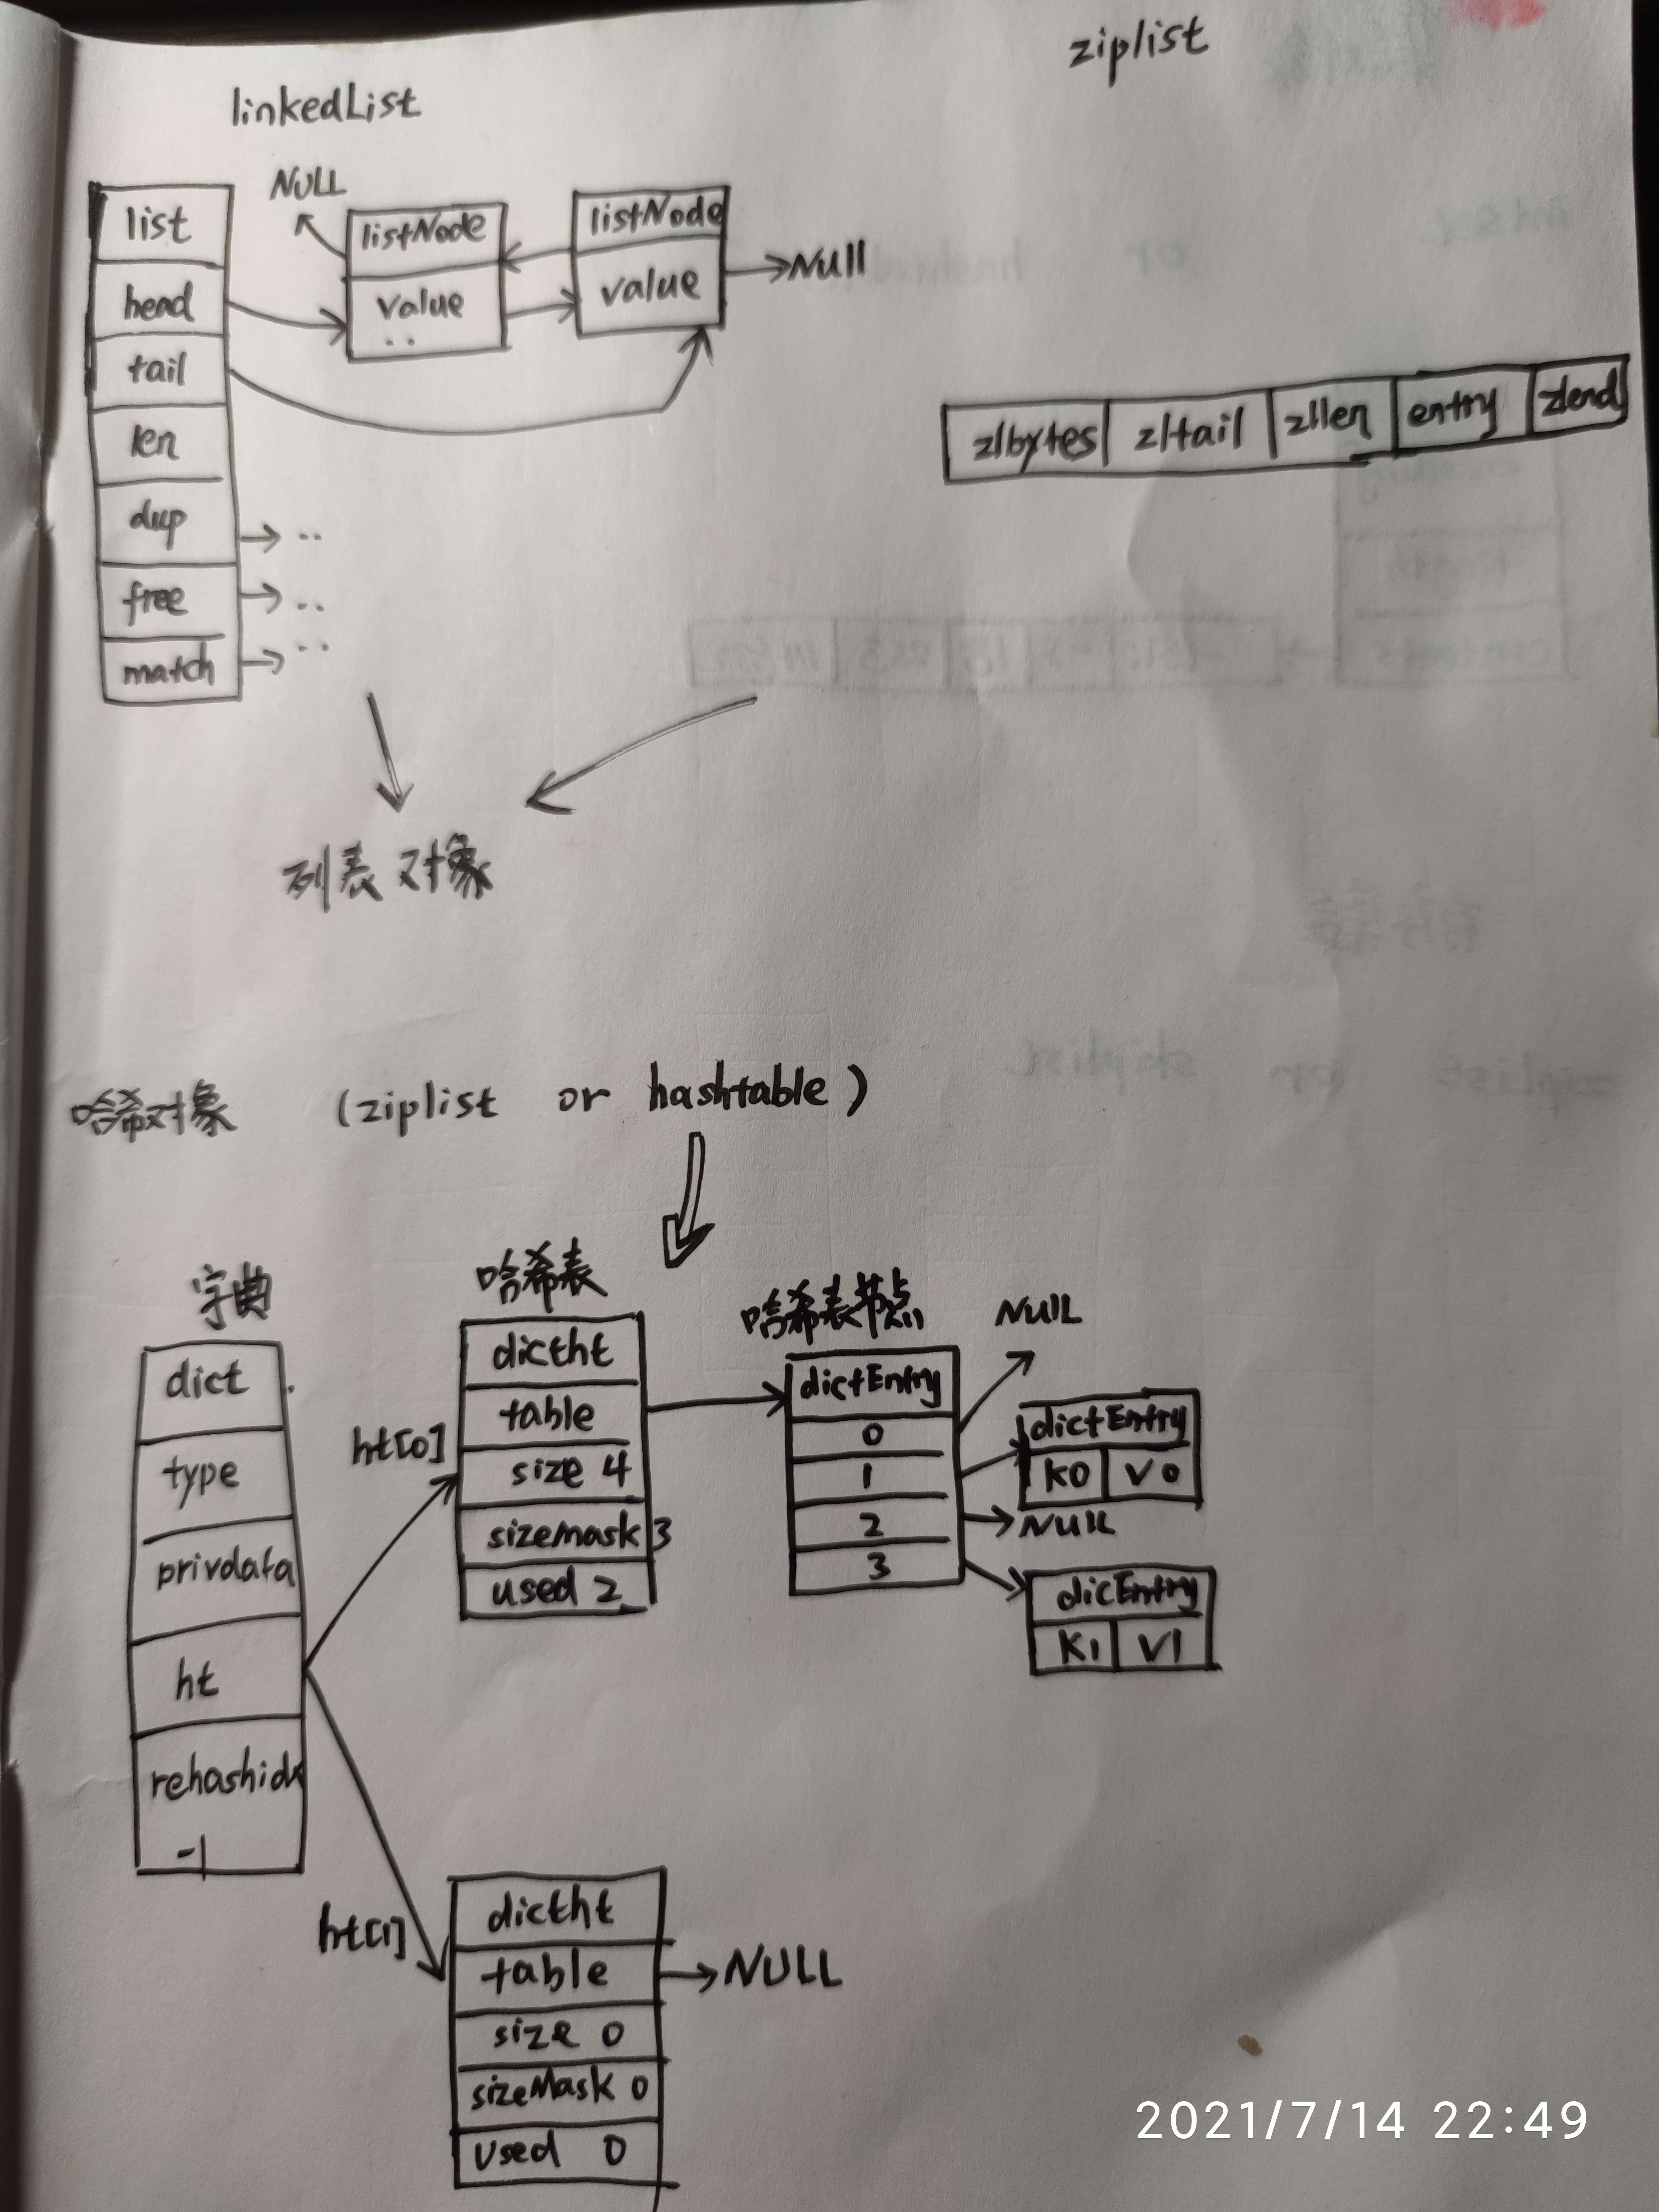 ziplist
linkedList
NULL
list
head
tail
len
dup
free
match
listNode
value
listNode
value
NUll
zlbytes zltail zllen entry zlend
列表对象
哈希对象 (ziplist or hashtable)
字典
dict
type
privdata
ht
rehashidx
-1
ht[0]
哈希表
dictht
table
size 4
sizemask 3
used 2
哈希表节点
dictEntry
0
1
2
3
NUll
dictEntry
K0 V0
NUll
dicEntry
K1 V1
ht[1]
dictht
table
size 0
sizeMask 0
used 0
NULL
2021/7/14 22:49